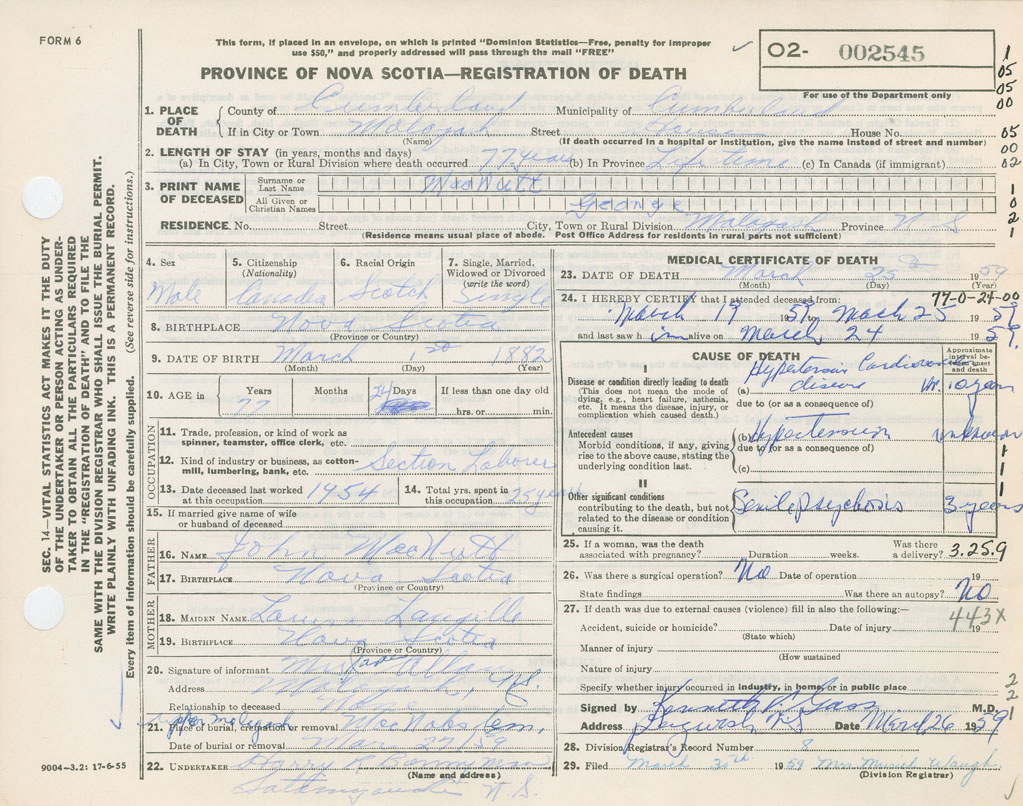 FORM 6
This form, if placed in an envelope, on which is printed "Dominion Statistics—Free, penalty for improper
use $50," and properly addressed will pass through the mail "FREE"
02- 002545
For use of the Department only
PROVINCE OF NOVA SCOTIA—REGISTRATION OF DEATH
1. PLACE OF DEATH
County of Cumberland Municipality of Cumberland
If in City or Town Malagash Street House House No.
(Name) (If death occurred in a hospital or institution, give the name instead of street and number)
2. LENGTH OF STAY (in years, months and days)
(a) In City, Town or Rural Division where death occurred 77 years (b) In Province Life time (c) In Canada (if immigrant)
3. PRINT NAME OF DECEASED
Surname or Last Name MacNutt
All Given or Christian Names George
RESIDENCE. No. Street City, Town or Rural Division Malagash Province N S
(Residence means usual place of abode. Post Office Address for residents in rural parts not sufficient)
4. Sex Male
5. Citizenship (Nationality) Canadia
6. Racial Origin Scotch
7. Single, Married, Widowed or Divorced (write the word) Single
8. BIRTHPLACE Nova Scotia
(Province or Country)
9. DATE OF BIRTH March 1st 1882
(Month) (Day) (Year)
10. AGE in Years 77 Months Days 24 If less than one day old hrs. or min.
OCCUPATION
11. Trade, profession, or kind of work as spinner, teamster, office clerk, etc.
12. Kind of industry or business, as cotton-mill, lumbering, bank, etc. Section Laborer
13. Date deceased last worked at this occupation 1954
14. Total yrs. spent in this occupation 25 years
15. If married give name of wife or husband of deceased
FATHER
16. NAME John MacNutt
17. BIRTHPLACE Nova Scotia
(Province or Country)
MOTHER
18. MAIDEN NAME Langille
19. BIRTHPLACE Nova Scotia
(Province or Country)
20. Signature of informant Mrs Allan
Address Malagash, N.S.
Relationship to deceased None
21. Place of burial, cremation or removal MacNabs Cem,
Malagash
Date of burial or removal Mar 27/59
22. UNDERTAKER Harry
(Name and address)
Tattamagouche N. S.
9004-3.2: 17-6-55
MEDICAL CERTIFICATE OF DEATH
23. DATE OF DEATH March 25 1959
(Month) (Day) (Year)
24. I HEREBY CERTIFY that I attended deceased from: 77-0-24-00
March 19 1959 to March 25 1959
and last saw him alive on March 24 1959.
CAUSE OF DEATH
Approximate interval between onset and death
I
Disease or condition directly leading to death
(This does not mean the mode of dying, e.g., heart failure, asthenia, etc. It means the disease, injury, or complication which caused death.)
(a) disease 10 years
due to (or as a consequence of)
Antecedent causes
Morbid conditions, if any, giving rise to the above cause, stating the underlying condition last.
(b) Hypertension unknown
due to (or as a consequence of)
(c)
II
Other significant conditions
contributing to the death, but not related to the disease or condition causing it.
Senile Psychosis 3 years
25. If a woman, was the death associated with pregnancy? Duration weeks. Was there a delivery? 3.25.9
26. Was there a surgical operation? No Date of operation 19
State findings Was there an autopsy? No
27. If death was due to external causes (violence) fill in also the following:— 443X
Accident, suicide or homicide? Date of injury 19
(State which)
Manner of injury
(How sustained
Nature of injury
Specify whether injury occurred in industry, in home, or in public place
Signed by Kenneth M.D.
Address Pugwash N S Date March 26 1959
28. Division Registrar's Record Number 8
29. Filed March 1959 Mrs Muriel Waugh
(Division Registrar)
1
05
05
00
05
00
02
1
0
2
1
1
1
1
2
2
1
SEC. 14—VITAL STATISTICS ACT MAKES IT THE DUTY
OF THE UNDERTAKER OR PERSON ACTING AS UNDER-
TAKER TO OBTAIN ALL THE PARTICULARS REQUIRED
IN THE "REGISTRATION OF DEATH" AND TO FILE THE
SAME WITH THE DIVISION REGISTRAR WHO SHALL ISSUE THE BURIAL PERMIT.
WRITE PLAINLY WITH UNFADING INK. THIS IS A PERMANENT RECORD.
Every item of information should be carefully supplied. (See reverse side for instructions.)